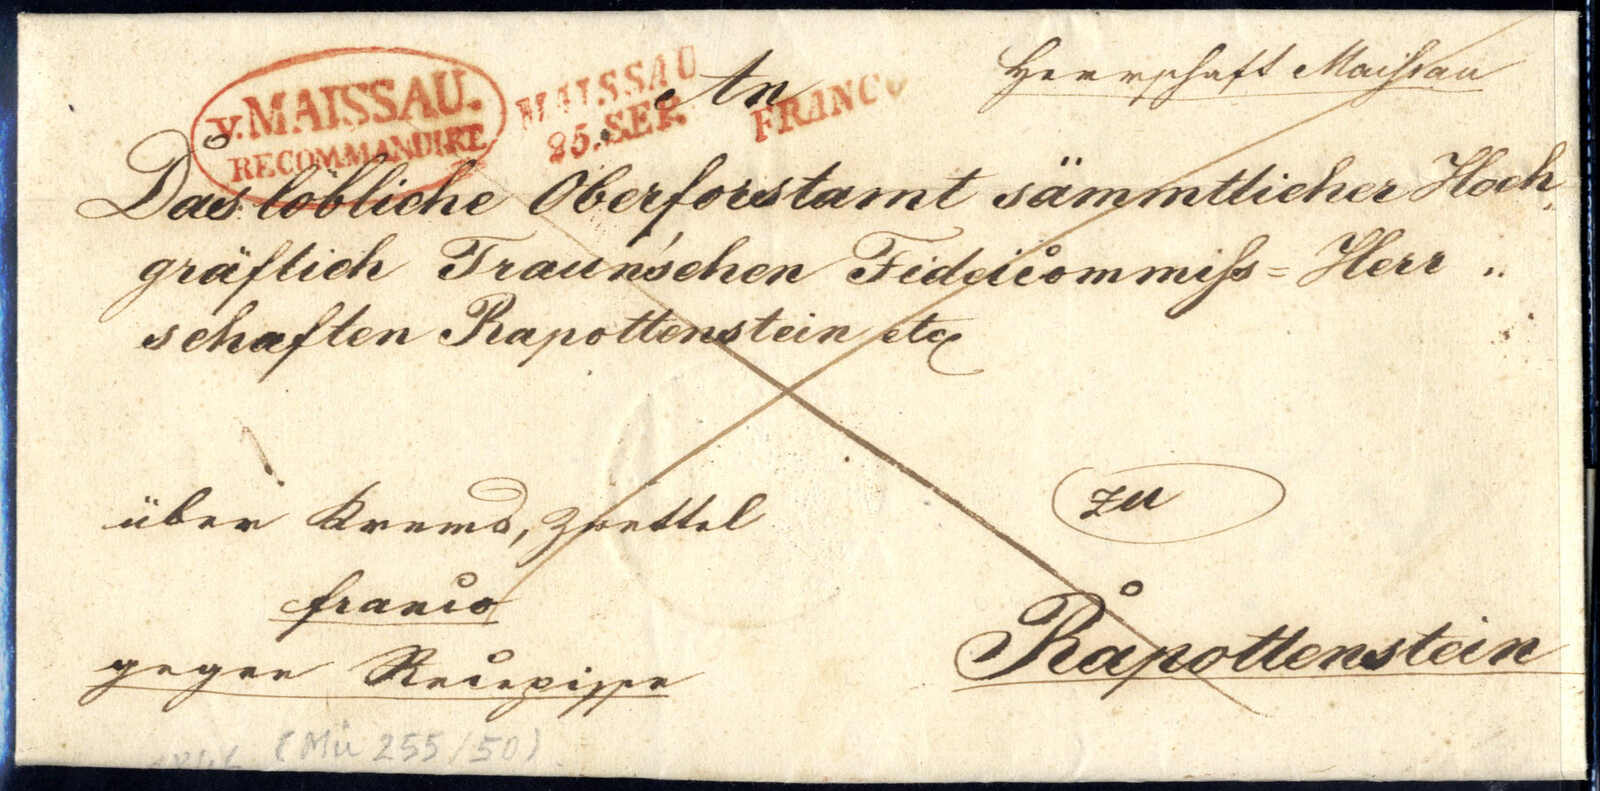 Herrschaft Maissau
v. MAISSAU.
RECOMMANDIRT
MAISSAU
25. SEP.
FRANCO
An
Das löbliche Oberforstamt sämmtlicher Hoch
gräflich Traun'schen Fideicommiss = Herr „
schaften Rapottenstein etc
über Krems, Zwettel
franco
gegen Recepisse
zu
Rapottenstein
(Mü 255/50)